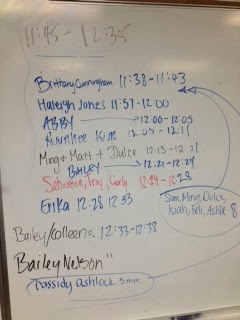 11:45 - 12:35
Brittany Cunningham 11:38-11:43
Haleigh Jones 11:57-12:00
ABBY 12:00-12:05
Kim 12:05-12:11
Ming + Matt + Dulce 12:15-12:21
BAILEY 12:21-12:24
Sebastian, Troy, Carly 12:24-12:28
Erika 12:28 12:33
Sam, Ming, Dulce,
Feli, Ashle 8
Bailey/Colleen= 12:33-12:38
Bailey Nelson"
Cassidy Ashlock 5 min